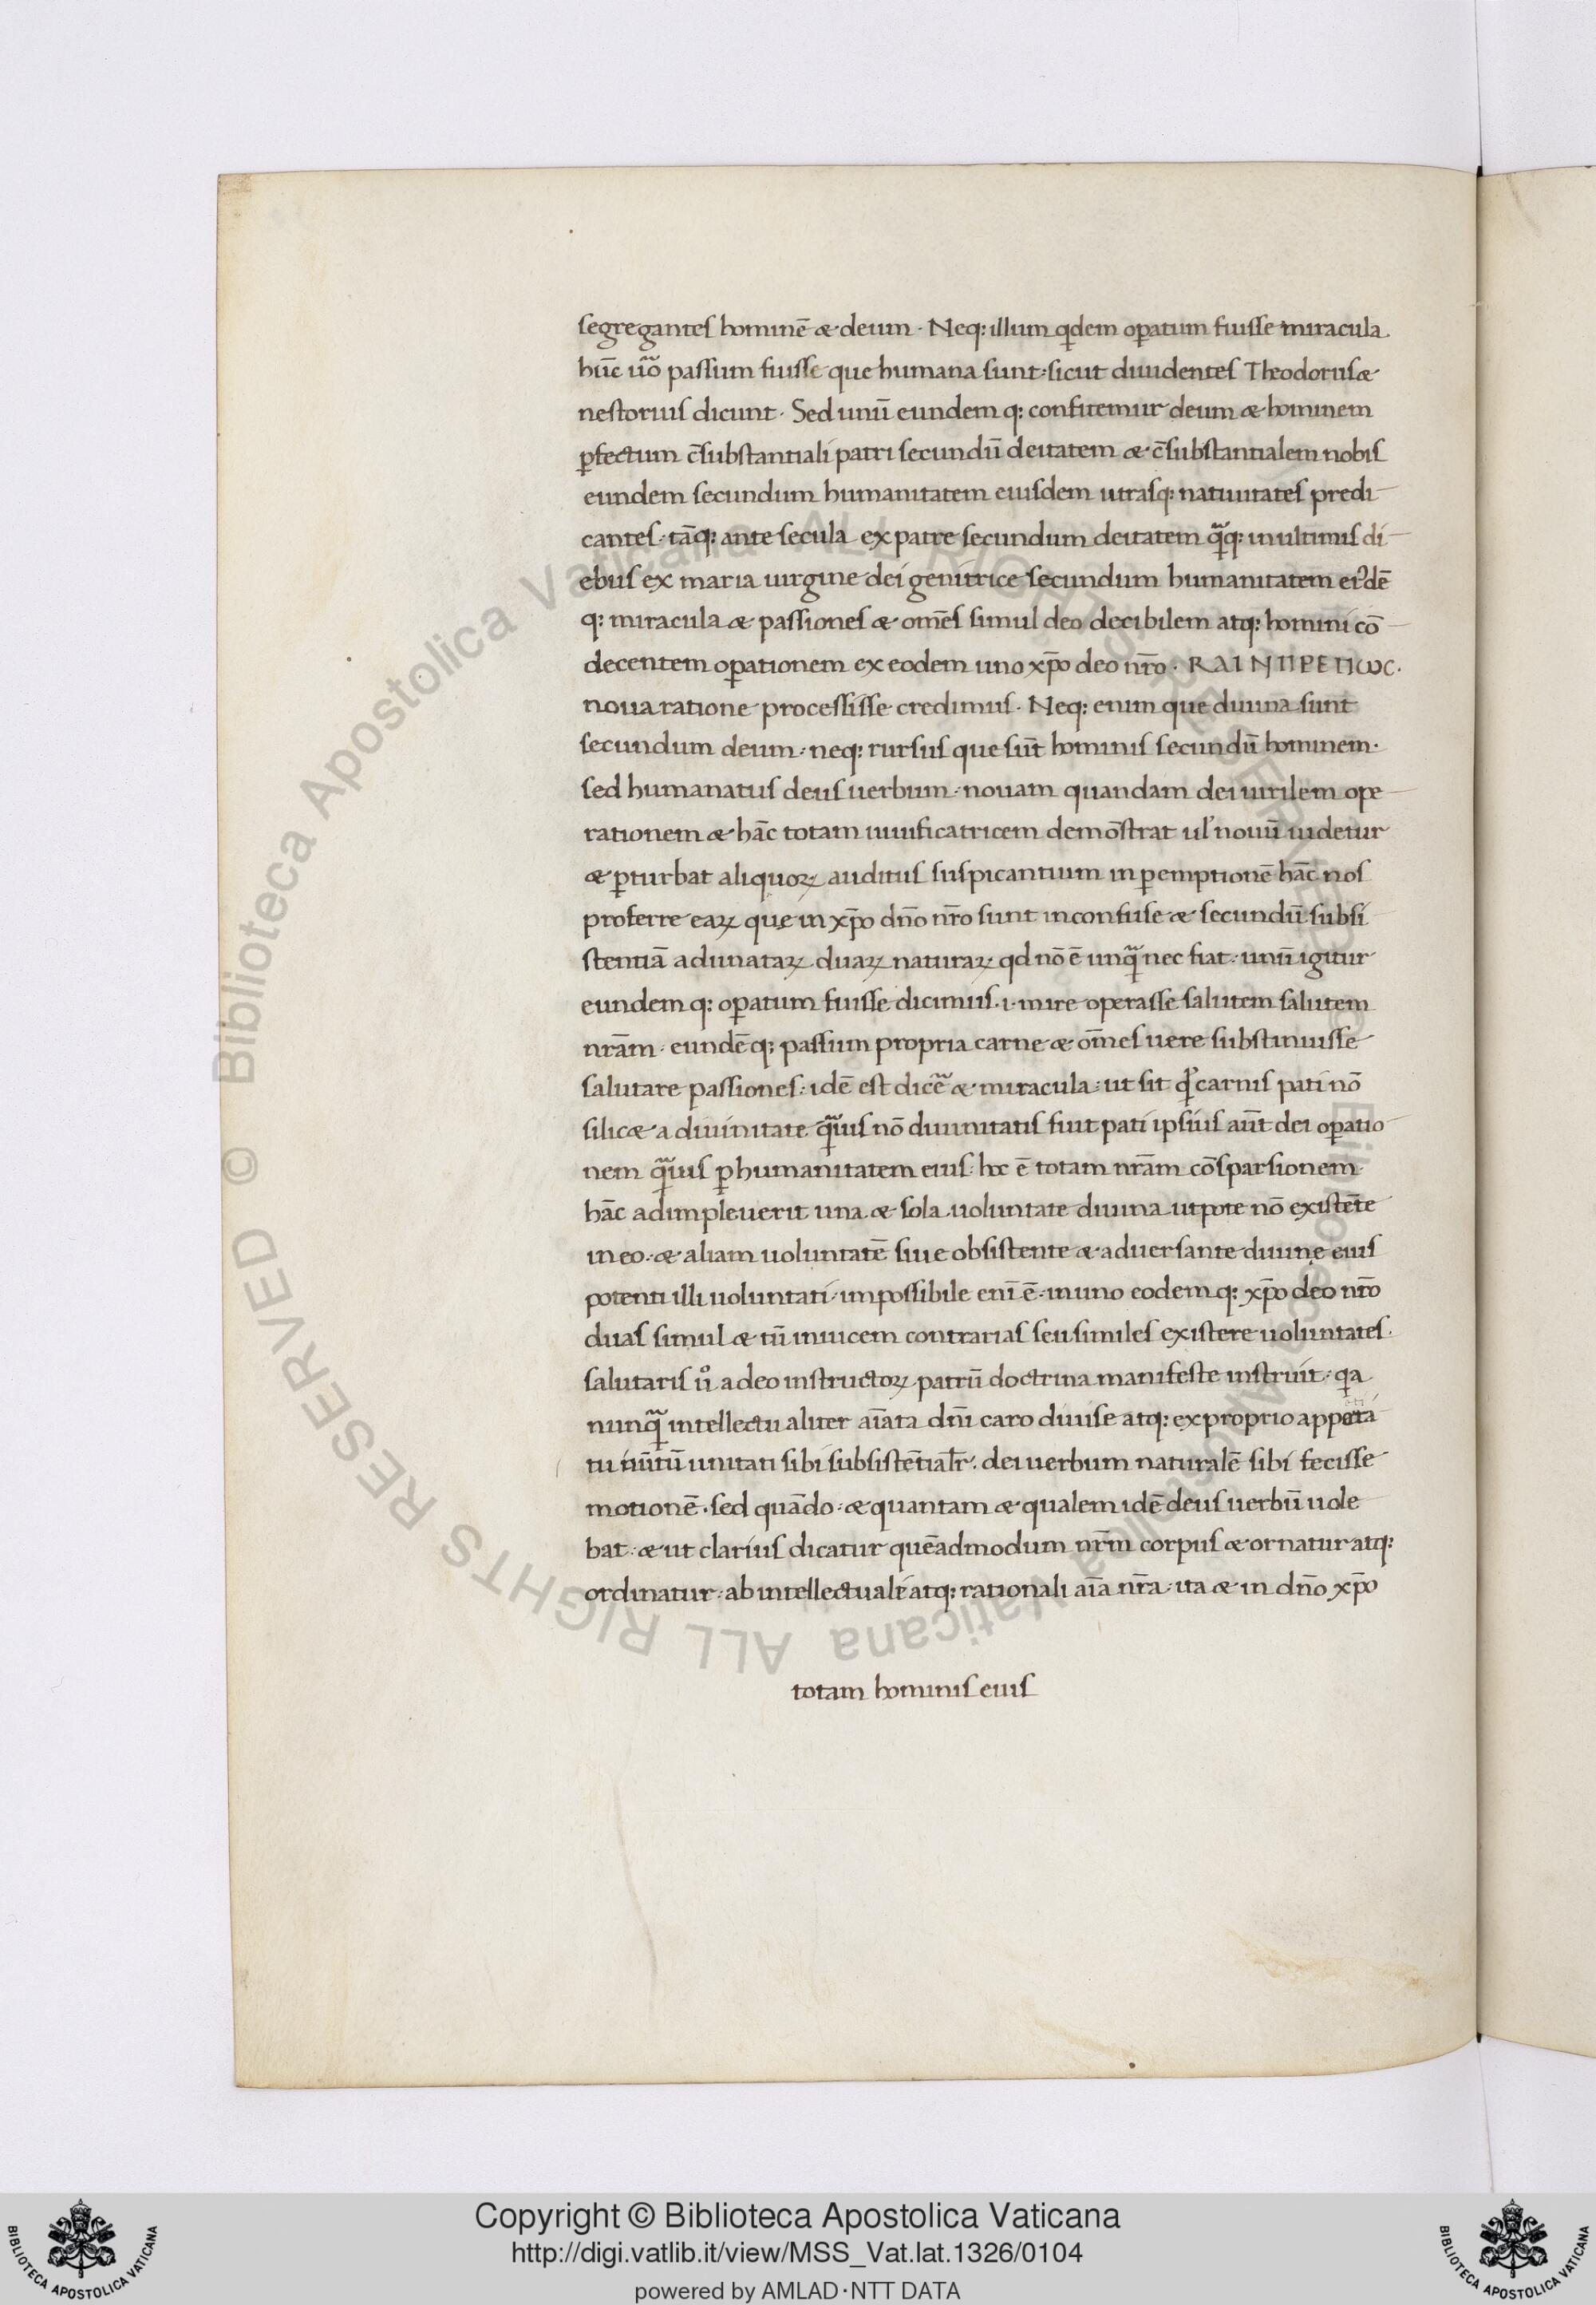 segregantes hominē & deum · Neq: illum qdem opatum fuisse miracula
hūc uo passum fuisse que humana sunt · sicut diuidentes Theodorus &
nestorius dicunt · Sed unū eundem q: confitemur deum & hominem
pfectum c̄substantiali patri secundū deitatem & c̄substantialem nobis
eundem secundum humanitatem eiusdem utrasq: natiuitates predi
cantes · tāq: ante secula ex patre secundum deitatem q̄q: in ultimis di
ebus ex maria uirgine dei genitrice secundum humanitatem ei'dē
q: miracula & passiones & om̄es simul deo decibilem atq: homini cō
decentem opationem ex eodem uno xp̄o deo nr̄o · RΛΙΝΠΡΕΠωC ·
noua ratione processisse credimus · Neq: enim que diuina sunt
secundum deum · neq: rursus que sūt hominis secundū hominem ·
sed humanatus deus uerbum · nouam quandam dei uirilem ope
rationem & hāc totam uiuificatricem demōstrat ul' nouū uidetur
& pturbat aliquoꝝ auditus suspicantium in pemptionē hāc nos
proferre eaꝝ quę in xp̄o dn̄o nr̄o sunt inconfuse & secundū subsi
stentiā adunataꝝ duaꝝ naturaꝝ qd nō ē unq̄ nec fiat · unū igitur
eundem q: opatum fuisse dicimus · i · mire operasse salutem salutem
nr̄am · eundēq: passum propria carne & om̄es uere substinuisse
salutare passiones · idē est dicē & miracula · ut sit q' carnis pati nō
silic& a diuinitate q̄uis nō diuinitatis fuit pati ipsius aūt dei opatio
nem q̄uis p humanitatem eius · hoc ē totam nr̄am cōsparsionem
hāc adimpleuerit una & sola uoluntate diuina utpote nō existēte
in eo · & aliam uoluntatē siue obsistente & aduersante diuinę eius
potenti illi uoluntati · impossibile enī ē · in uno eodem q: xp̄o deo nr̄o
duas simul & tū inuicem contrarias seu similes existere uoluntates ·
salutaris u° a deo instructoꝝ patrū doctrina manifeste instruit · qa
nunq̄ intellectualiter aīata dn̄i caro diuise atq: ex proprio appeta
tu nūtū unitati sibi subsistētialr̄ · dei uerbum naturalē sibi fecisse
motionē · sed quādo · & quantam & qualem idē deus uerbū uole
bat · & ut clarius dicatur quēadmodum nr̄m corpus & ornatur atq:
ordinatur · ab intellectuali atq: rationali aīa nr̄a · ita & in dn̄o xp̄o
totam hominis eius
© Biblioteca Apostolica Vaticana ALL RIGHTS RESERVED
© Biblioteca Apostolica Vaticana ALL RIGHTS RESERVED
Copyright © Biblioteca Apostolica Vaticana
http://digi.vatlib.it/view/MSS_Vat.lat.1326/0104
powered by AMLAD·NTT DATA
BIBLIOTECA APOSTOLICA VATICANA
BIBLIOTECA APOSTOLICA VATICANA